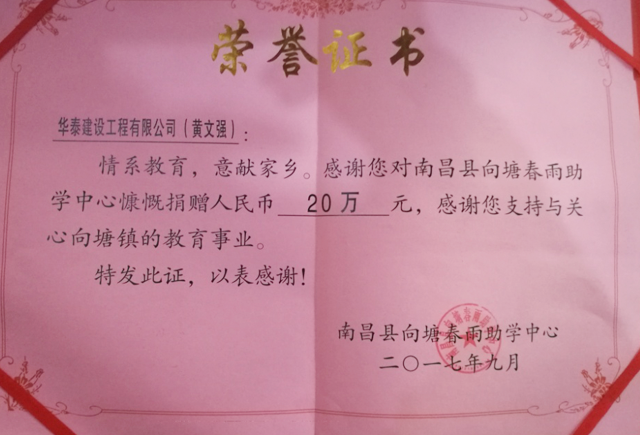 荣誉证书
华泰建设工程有限公司（黄文强）：
情系教育，意献家乡。感谢您对南昌县向塘春雨助
学中心慷慨捐赠人民币 20万 元，感谢您支持与关
心向塘镇的教育事业。
特发此证，以表感谢！
南昌县向塘春雨助学中心
二〇一七年九月